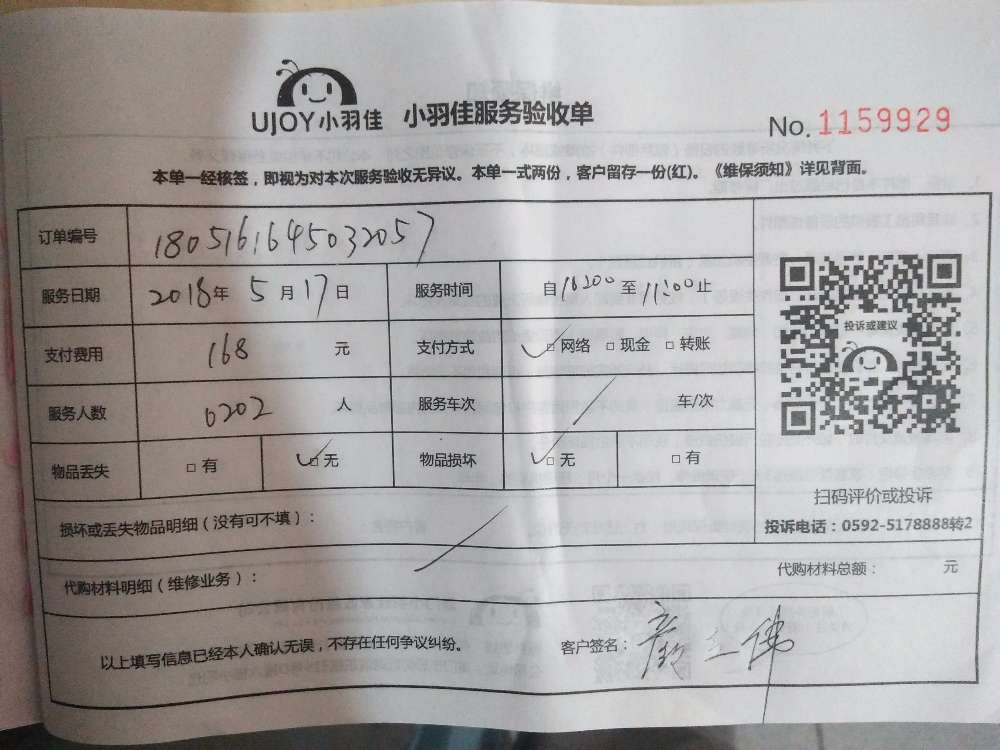 UJOY小羽佳 小羽佳服务验收单
No. 1159929
本单一经核签，即视为对本次服务验收无异议。本单一式两份，客户留存一份(红)。《维保须知》详见背面。
订单编号 1805161645032057
服务日期 2018年 5月17日 服务时间 自 至11:00止
支付费用 168 元 支付方式 ✓□网络 □现金 □转账
投诉或建议
服务人数 0202 人 服务车次 / 车/次
物品丢失 □有 ✓□无 物品损坏 ✓□无 □有
扫码评价或投诉
损坏或丢失物品明细（没有可不填）： /
投诉电话：0592-5178888转2
代购材料明细（维修业务）： 代购材料总额： 元
以上填写信息已经本人确认无误，不存在任何争议纠纷。 客户签名：